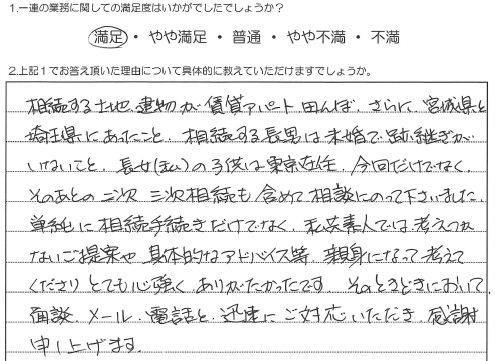 1.一連の業務に関しての満足度はいかがでしたでしょうか?
満足 ・ やや満足 ・ 普通 ・ やや不満 ・ 不満
2.上記1でお答え頂いた理由について具体的に教えていただけますでしょうか。
相続する土地、建物が賃貸アパート田んぼ、さらに、宮城県と
埼玉県にあったこと、相続する長男は未婚で跡継ぎが
いないこと、長女(私)の子供は東京在住、今回だけでなく、
そのあとの二次三次相続も含めて相談にのって下さいました。
単純に相続手続きだけでなく、私共素人では考えつか
ないご提案や具体的なアドバイス等、親身になって考えて
くださりとても心強くありがたかったです。そのときどきにおいて、
面談、メール、電話と、迅速にご対応いただき、感謝
申し上げます。